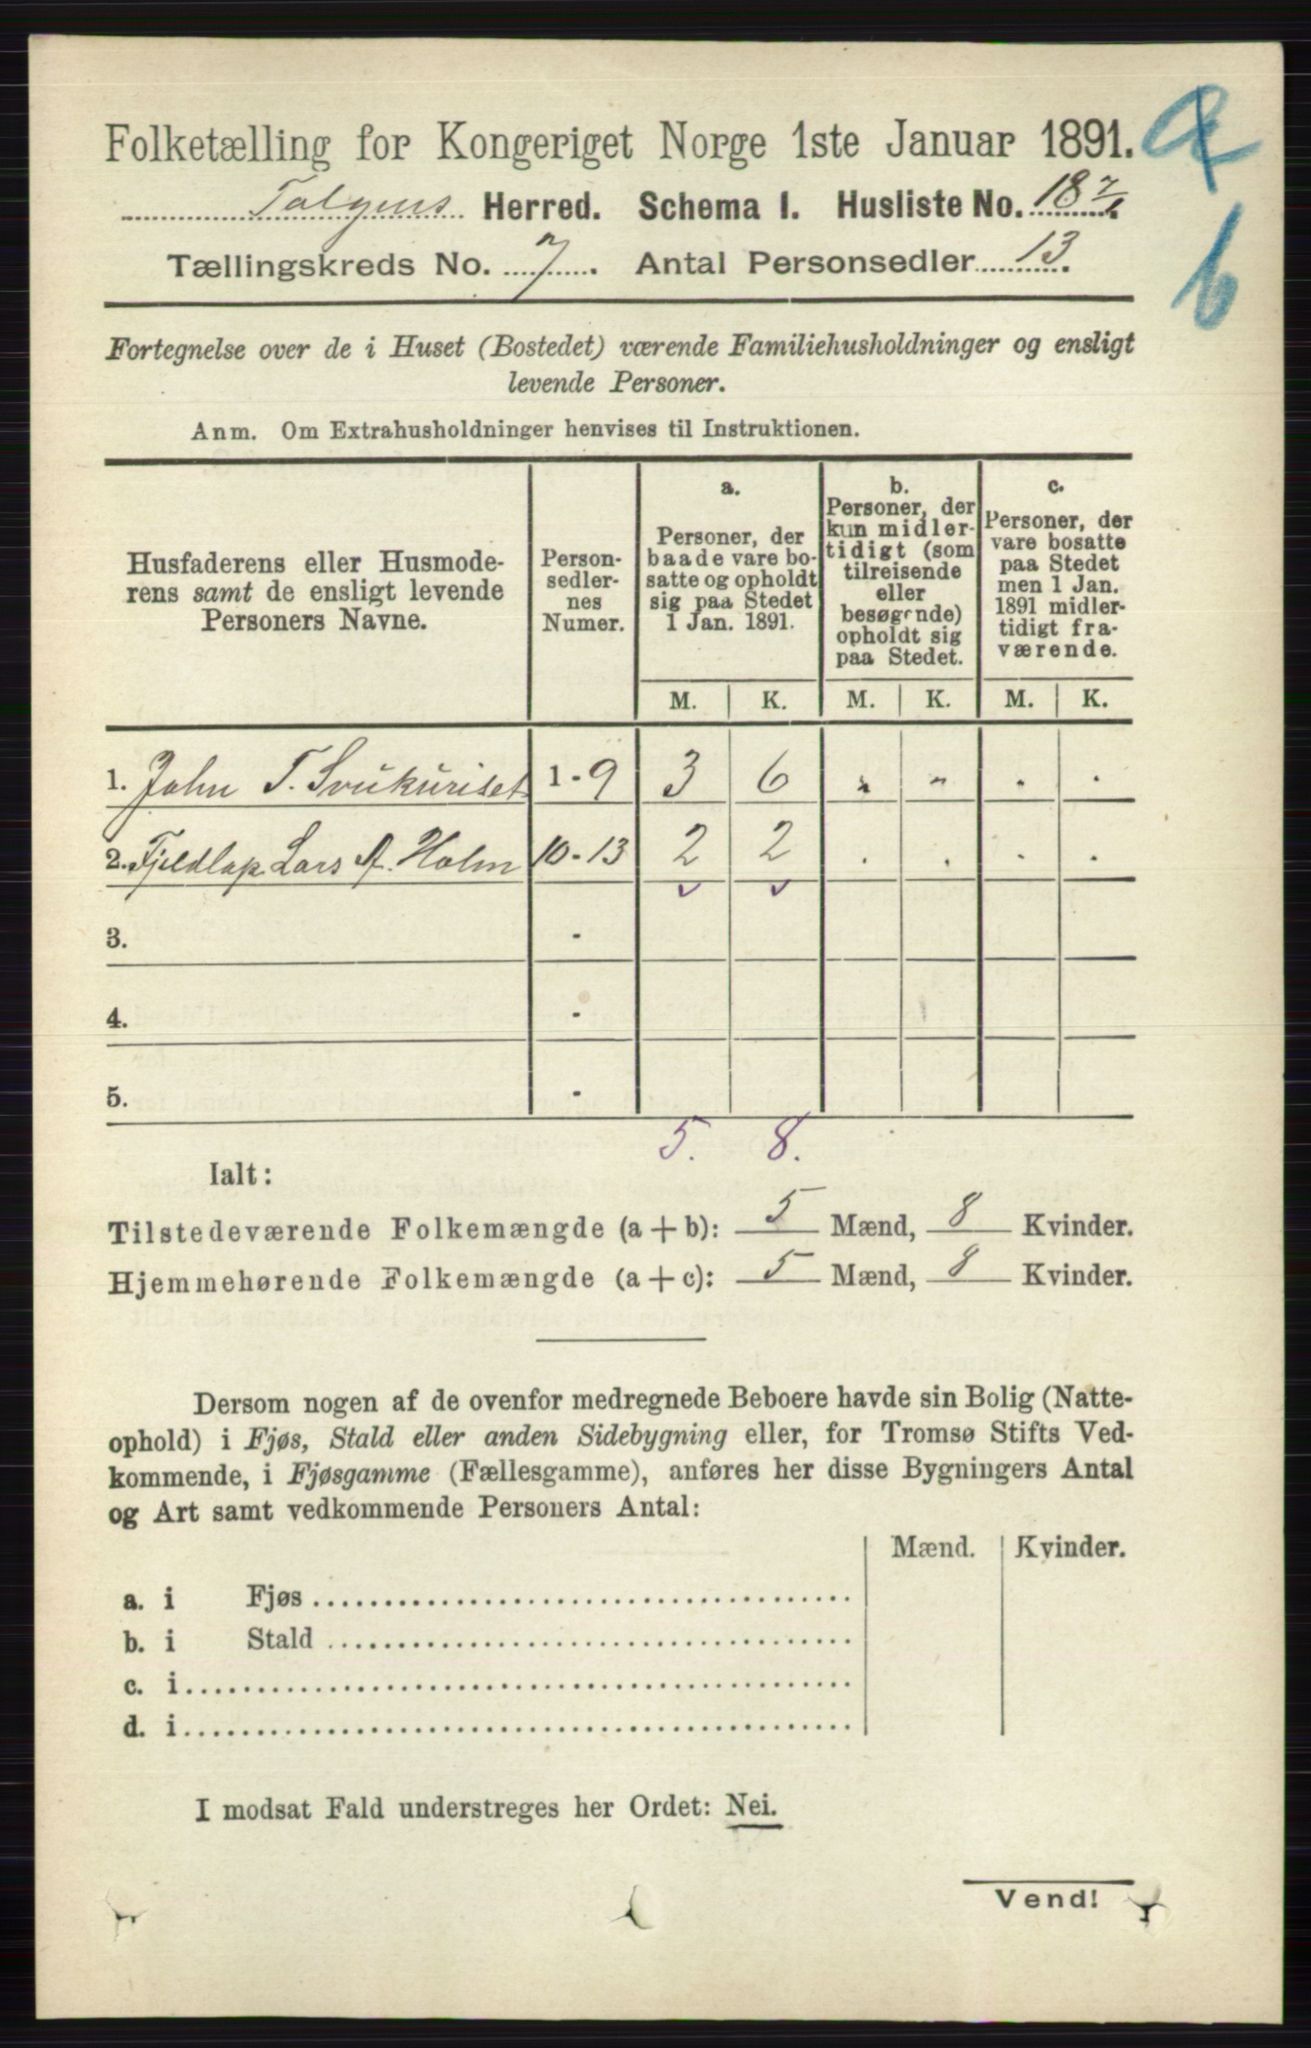 Folketælling for Kongeriget Norge 1ste Januar 1891.
Tolgens Herred. Schema I. Husliste No. 18
Tællingskreds No. 7. Antal Personsedler 13.
b
Fortegnelse over de i Huset (Bostedet) værende Familiehusholdninger og ensligt
levende Personer.
Anm. Om Extrahusholdninger henvises til Instruktionen.
Husfaderens eller Husmode-
rens samt de ensligt levende
Personers Navne.
Person-
sedler-
nes
Numer.
a.
Personer, der
baade vare bo-
satte og opholdt
sig paa Stedet
1 Jan. 1891.
b.
Personer, der
kun midler-
tidigt (som
tilreisende
eller
besøgende)
opholdt sig
paa Stedet.
c.
Personer, der
vare bosatte
paa Stedet
men 1 Jan.
1891 midler-
tidigt fra-
værende.
M. K. M. K. M. K.
1. John T. Svukuriset 1-9 3 6 " " . .
2. Fjeldlap Lars A. Holm 10-13 2 2 . . . .
3. -
4. -
5. -
5. 8.
Ialt:
Tilstedeværende Folkemængde (a + b): 5 Mænd, 8 Kvinder.
Hjemmehørende Folkemængde (a + c): 5 Mænd, 8 Kvinder.
Dersom nogen af de ovenfor medregnede Beboere havde sin Bolig (Natte-
ophold) i Fjøs, Stald eller anden Sidebygning eller, for Tromsø Stifts Ved-
kommende, i Fjøsgamme (Fællesgamme), anføres her disse Bygningers Antal
og Art samt vedkommende Personers Antal:
Mænd. Kvinder.
a. i Fjøs
b. i Stald
c. i
d. i
I modsat Fald understreges her Ordet: Nei.
Vend!